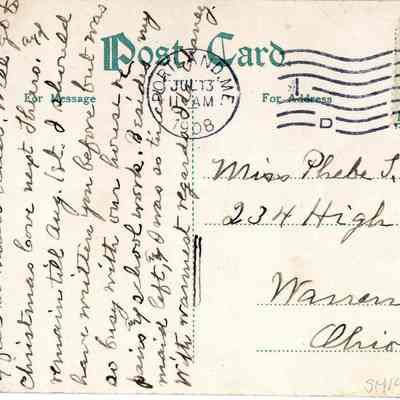 Post Card.
For Message
For Address
PORTLAND, ME.
JUL 13
11 AM
1908
1
D
Miss Phebe T.
234 High
Warren
Ohio
Christmas love next Thurs.
remain till Aug. 1st. I should
have written you before but was
so busy with our house re-
pairs & school work besides my
maid left, & I was so tired
With warmest regards
SM19